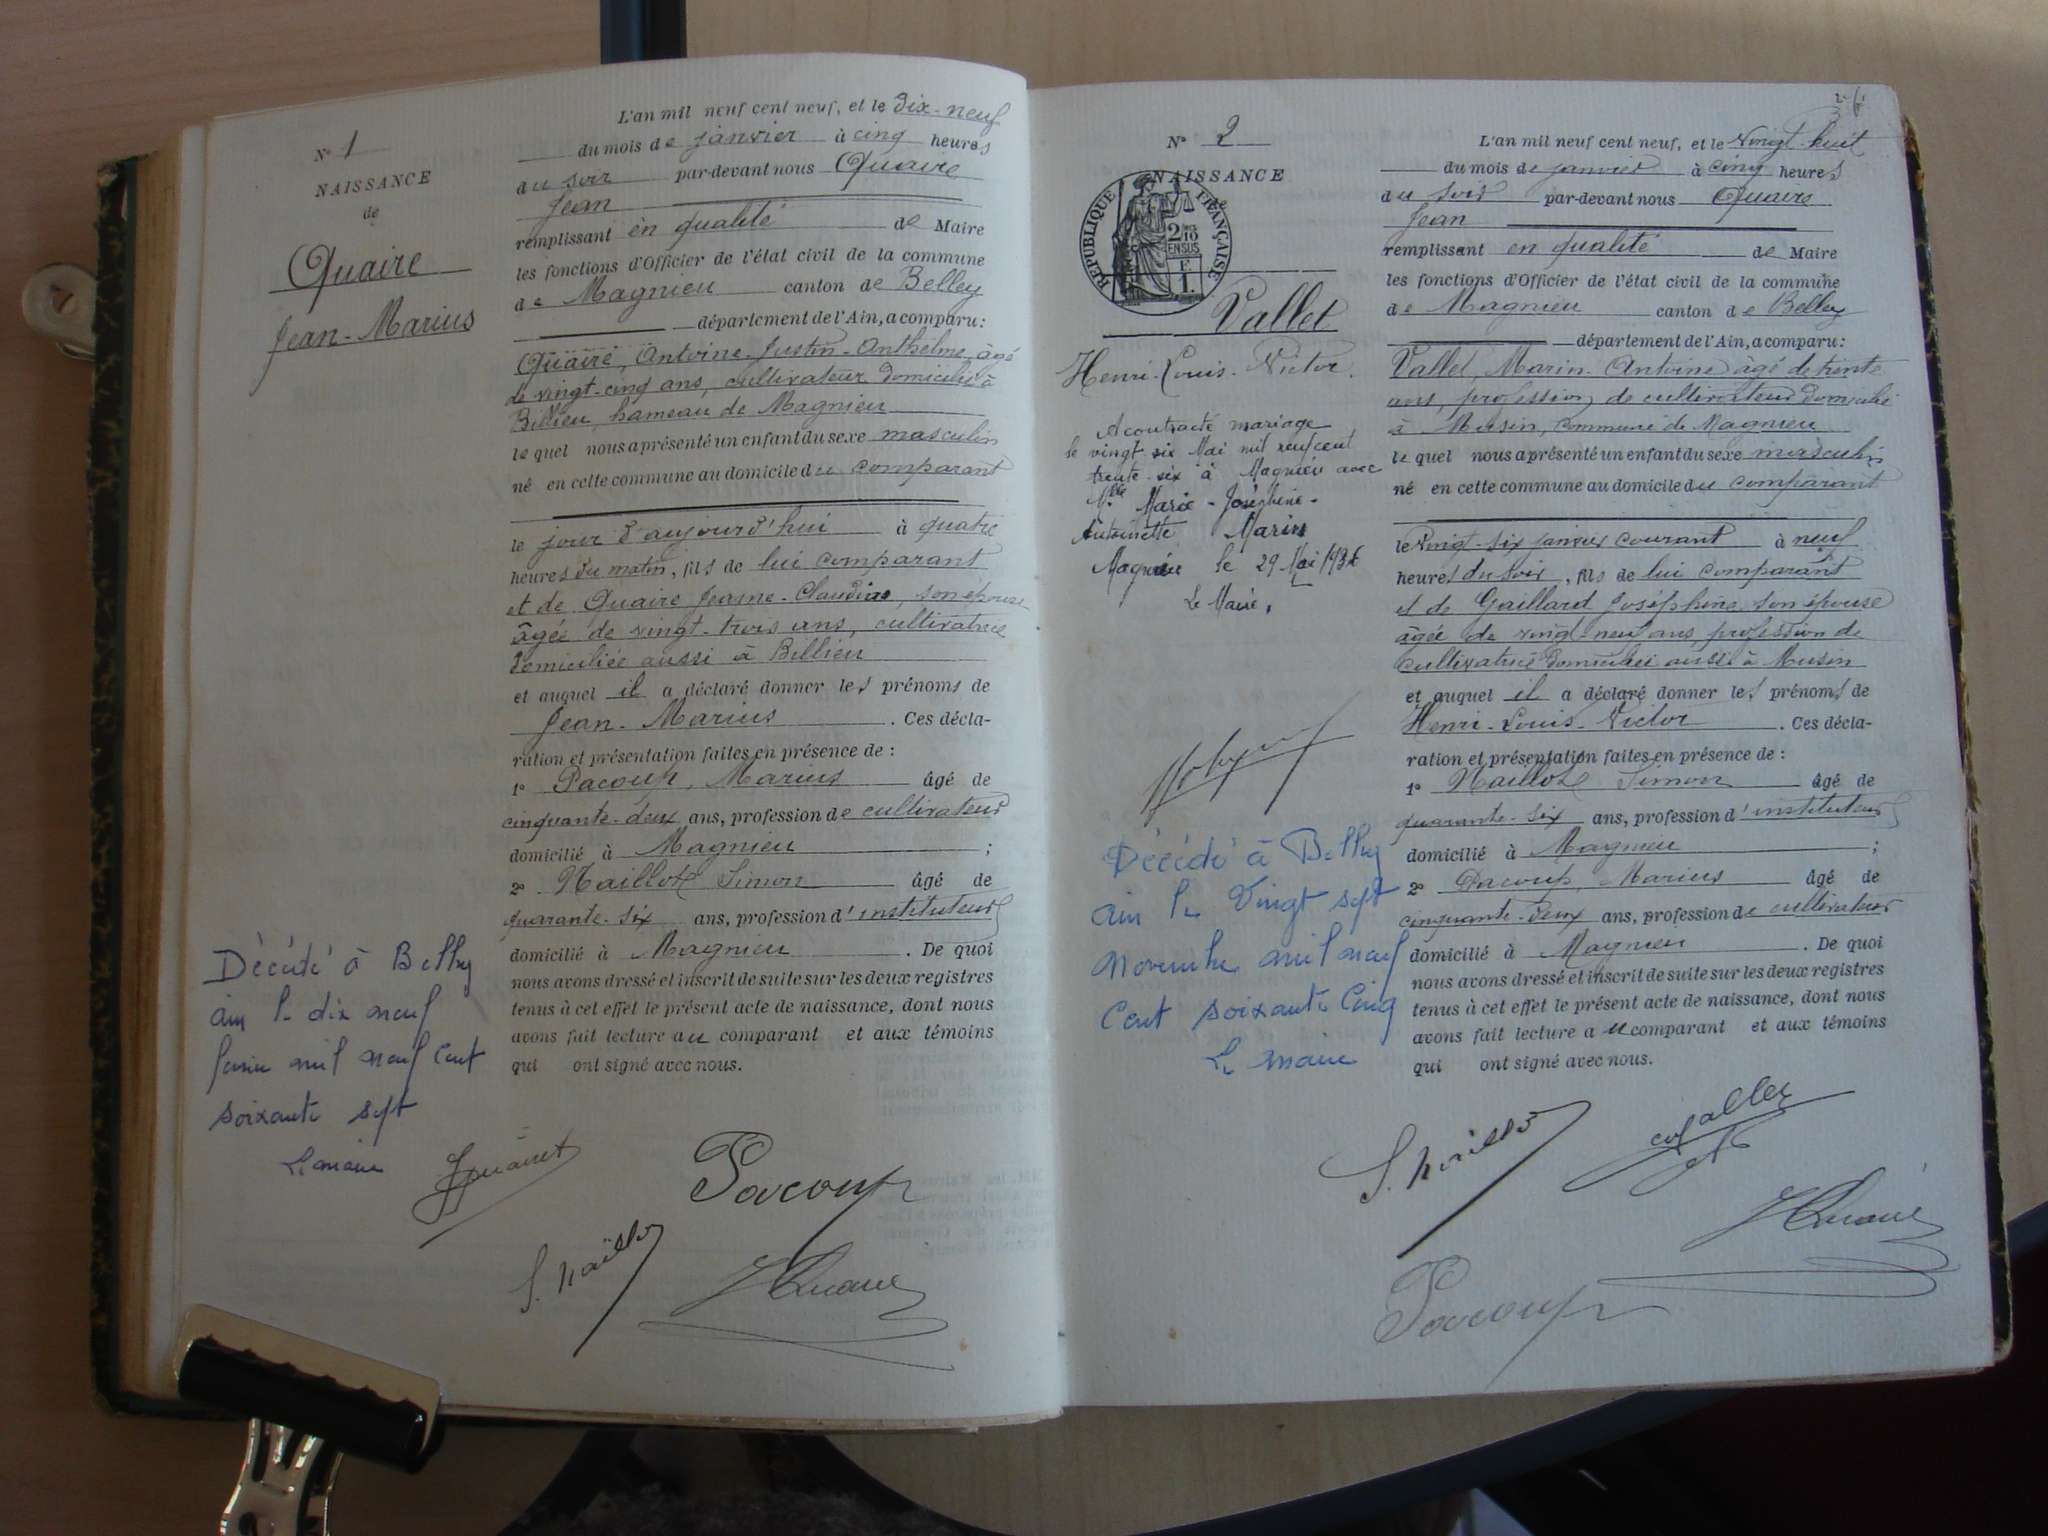 N° 1
NAISSANCE
de
Quaire
Jean-Marius
L'an mil neuf cent neuf, et le dix-neuf
du mois de janvier à cinq heures
du soir par-devant nous Quaire
Jean
remplissant en qualité de Maire
les fonctions d'Officier de l'état civil de la commune
de Magnieu canton de Belley
département de l'Ain, a comparu:
Quaire, Antoine-Justin-Anthelme, âgé
de vingt-cinq ans, cultivateur domicilié à
Billieu, hameau de Magnieu
lequel nous a présenté un enfant du sexe masculin
né en cette commune au domicile du comparant
le jour d'aujourd'hui à quatre
heures du matin, fils de lui comparant
et de Quaire Jeanne-Claudia, son épouse
âgée de vingt-trois ans, cultivatrice
domiciliée aussi à Billieu
et auquel il a déclaré donner les prénoms de
Jean-Marius. Ces décla-
ration et présentation faites en présence de :
1° Pacoup, Marius âgé de
cinquante-deux ans, profession de cultivateur
domicilié à Magnieu ;
2° Naillod Simon âgé de
quarante-six ans, profession d'instituteur
domicilié à Magnieu. De quoi
nous avons dressé et inscrit de suite sur les deux registres
tenus à cet effet le présent acte de naissance, dont nous
avons fait lecture au comparant et aux témoins
qui ont signé avec nous.
Décédé à Belley
ain le dix neuf
mil neuf cent
soixante sept
Le maire
Pacoup
J Quaire
N° 2
NAISSANCE
REPUBLIQUE FRANÇAISE
2/10 EN SUS
E
1.
Vallet
Henri-Louis-Victor.
A contracté mariage
le vingt six Mai mil neuf cent
trente-six à Magnieu avec
Mlle Marie-Joséphine-
Antoinette Marin
Magnieu le 29 Mai 1936
Le Maire,
Décédé à Belley
ain le Vingt sept
novembre mil neuf
Cent soixante Cinq
Le maire
L'an mil neuf cent neuf, et le Vingt-huit
du mois de janvier à cinq heures
du soir par-devant nous Quaire
Jean
remplissant en qualité de Maire
les fonctions d'Officier de l'état civil de la commune
de Magnieu canton de Belley
département de l'Ain, a comparu:
Vallet, Marin-Antoine âgé de trente
ans, profession de cultivateur domicilié
à Musin, commune de Magnieu
lequel nous a présenté un enfant du sexe masculin
né en cette commune au domicile du comparant
le vingt-six janvier courant à neuf
heures du soir, fils de lui comparant
et de Gaillard Joséphine son épouse
âgée de vingt-neuf ans profession de
cultivatrice domiciliée aussi à Musin
et auquel il a déclaré donner les prénoms de
Henri-Louis-Victor. Ces décla-
ration et présentation faites en présence de :
1° Naillod Simon âgé de
quarante-six ans, profession d'instituteur
domicilié à Magnieu ;
2° Pacoup, Marius âgé de
cinquante-deux ans, profession de cultivateur
domicilié à Magnieu. De quoi
nous avons dressé et inscrit de suite sur les deux registres
tenus à cet effet le présent acte de naissance, dont nous
avons fait lecture au comparant et aux témoins
qui ont signé avec nous.
J Quaire
Pacoup